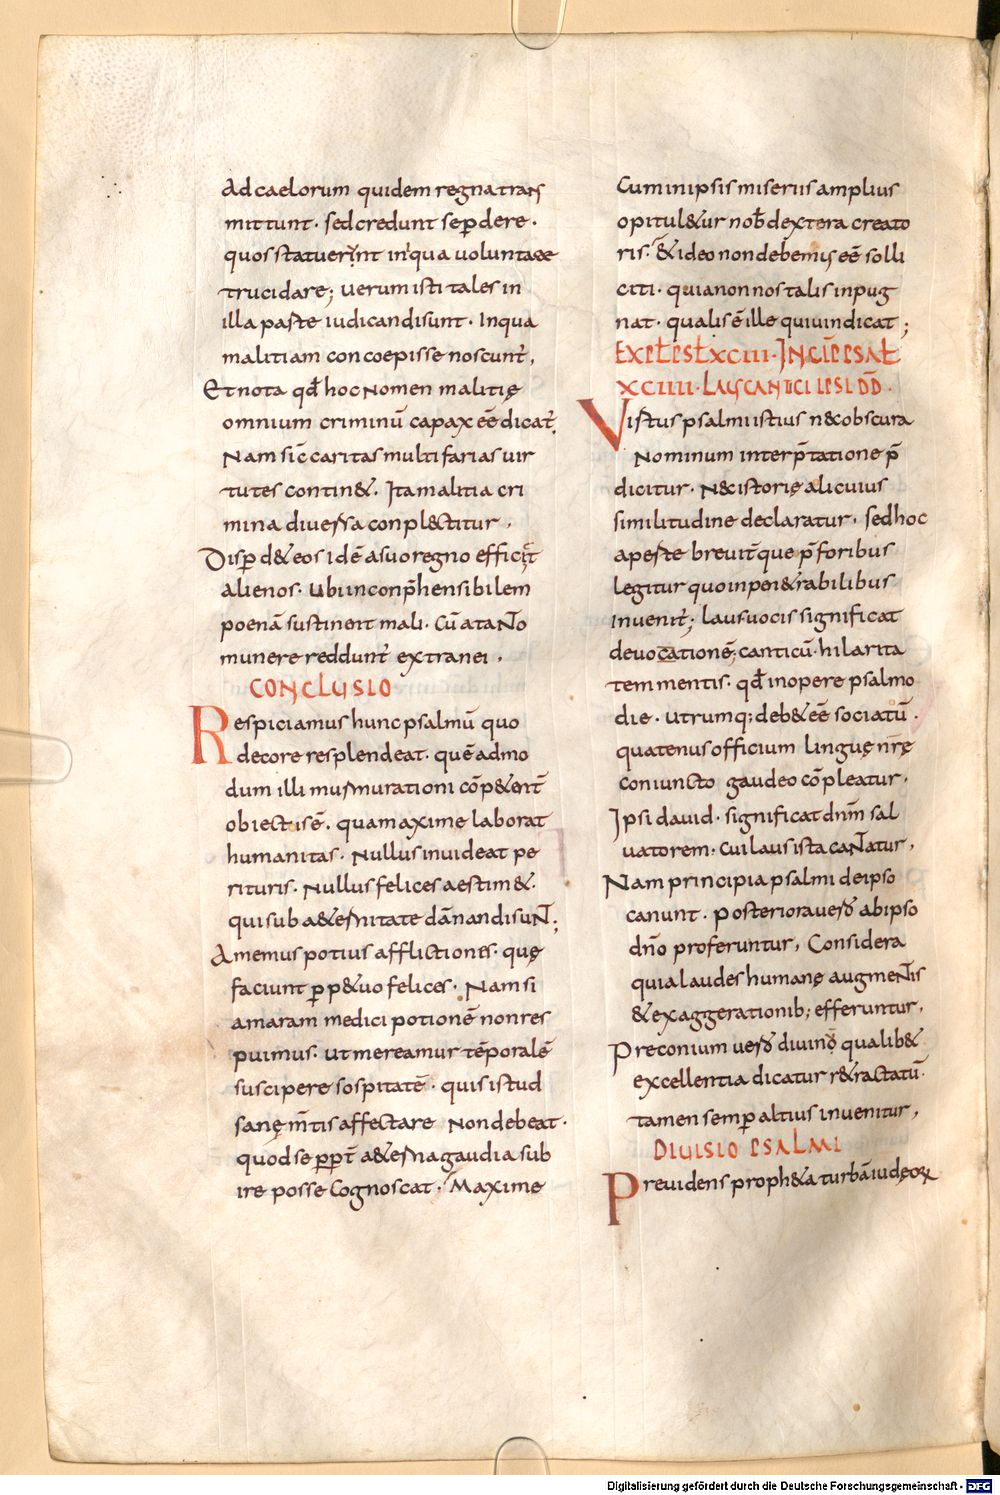 Ad caelorum quidem regna trans
mittunt · sed credunt se ꝑdere ·
quos statuerint iniqua voluntate
trucidare; uerum isti tales in
illa parte iudicandi sunt · Iniqua
malitiam concoepisse noscunt̄,
Et nota qđ hoc nomen malitię
omnium criminū capax eē dicat̄.
Nam sic̄ caritas multifarias uir
tutes contin&. Ita malitia cri
mina diuersa conpl&titur,
Disꝑd& eos idē a suo regno efficit
alienos · ubi inconp̄hensibilem
poenā sustinent mali · Cū a tanto
munere reddunt̄ extranei,
CONCLUSIO
Respiciamus hunc psalmū quo
decore resplendeat · quē admo
dum illi murmurationi cōp&ent̄
obiectis ē. qua maxime laborat
humanitas · Nullus inuideat pe
rituris · Nullus felices aestim&.
qui sub a&ernitate dānandi sunt;
Amemus potius afflictiones · quę
faciunt ꝑp&uo felices · Nam si
amaram medici potionē non res
puimus · ut mereamur tēporalē
suscipere sospitatē · quis istud
sanę m̄tis affectare non debeat ·
quod se ꝑ ꝑt̄ a&erna gaudia sub
ire posse cognoscat · Maxime
Cum in ipsis miseriis amplius
opitul&ur noƀ dextera creato
ris · & ideo non debemus eē solli
citi · quia non nos talis inpug
nat · qualis ē ille qui uindicat;
EXPŁ PSŁ XCIII · INCIP̄ PSAŁ
XCIIII · LAUS CANTICI IPSI DD̄ ·
Virtus psalmi istius n& obscura
nominum interp̄tatione p̄
dicitur · N& istorię alicuius
similitudine declaratur · sed hoc
aperte breuit̄que p̄ foribus
legitur quo in pen&rabilibus
inuenit̄; laus uocis significat
deuocationē; canticū · hilarita
tem mentis · qđ in opere psalmo
die · utrumq; deb& eē sociatū ·
quatenus officium linguę nr̄ę
coniuncto gaudeo cōpleatur ·
Ipsi dauid · significat dnm̄ sal
uatorem · cui laus ista cantatur,
Nam principia psalmi de ipso
canunt · posteriora uero ab ipso
dn̄o proferuntur, Considera
quia laudes humanę augmentis
& exaggerationib; efferuntur,
Preconium uero diuinō qualib&
excellentia dicatur r&ractatū ·
tamen semꝑ altius inuenitur,
DIUISIO PSALMI
Preuidens proph&a turbā iudęoꝝ
Digitalisierung gefördert durch die Deutsche Forschungsgemeinschaft - DFG